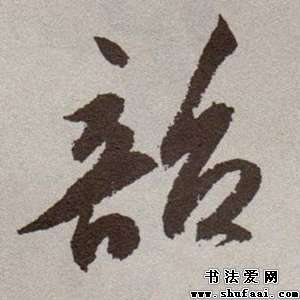 韶
书法爱网
www.shufaai.com